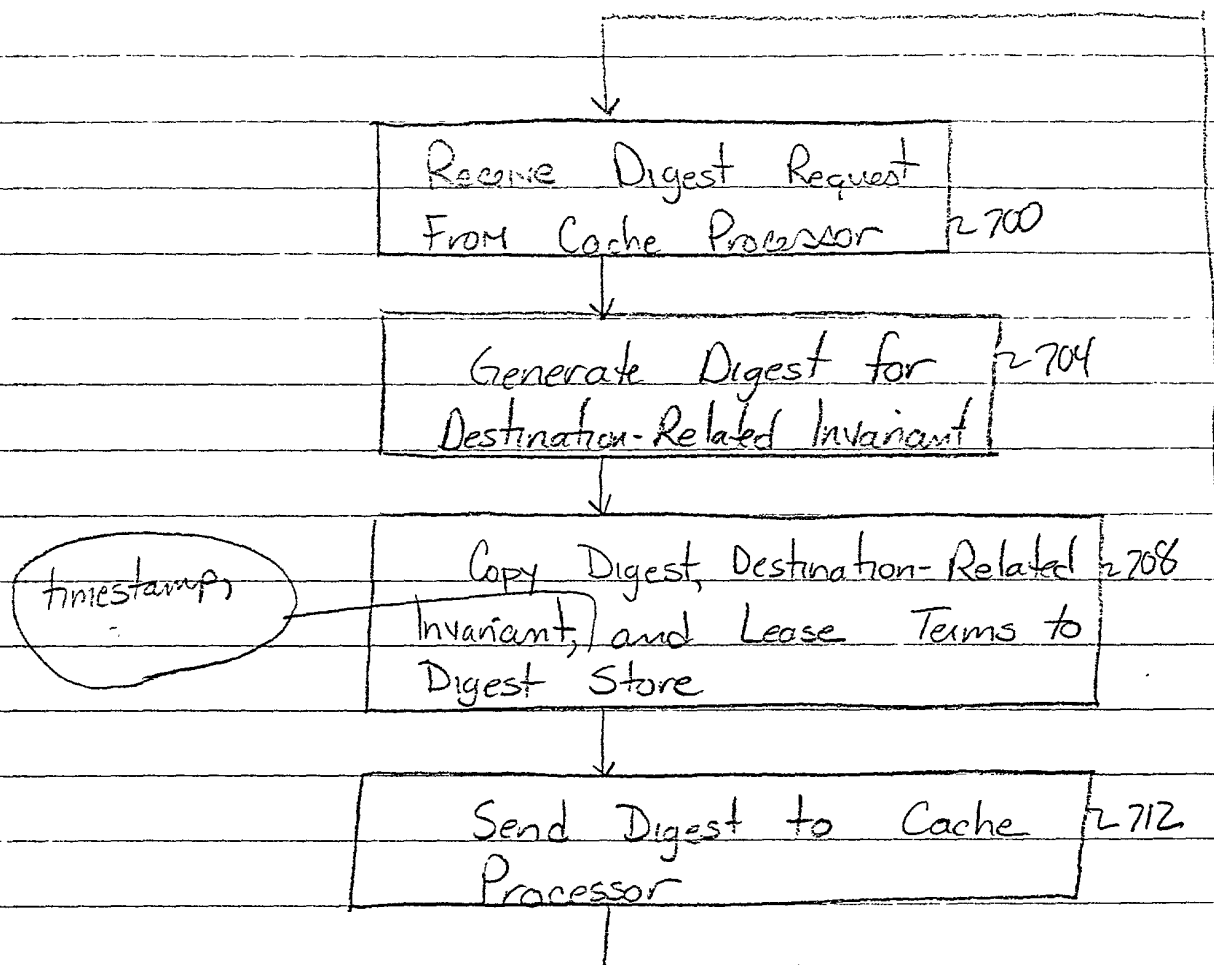 Receive Digest Request
From Cache Processor
~700
Generate Digest for
Destination-Related Invariant
~704
Copy Digest, Destination-Related
Invariant, and Lease Terms to
Digest Store
~708
timestamp,
Send Digest to Cache
Processor
~712